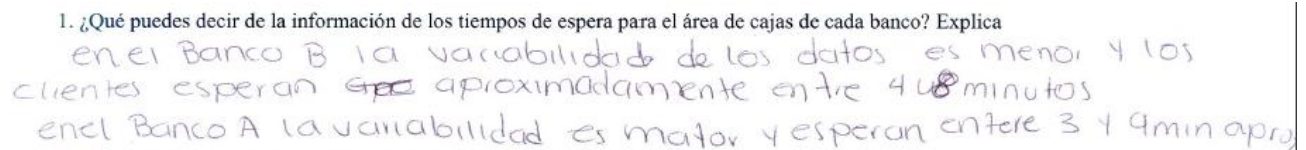 1. ¿Qué puedes decir de la información de los tiempos de espera para el área de cajas de cada banco? Explica
en el Banco B la variabilidad de los datos es menor y los
clientes esperan aproximadamente entre 4 u 8 minutos
en el Banco A la variabilidad es mator y esperan entere 3 y 9 min apro